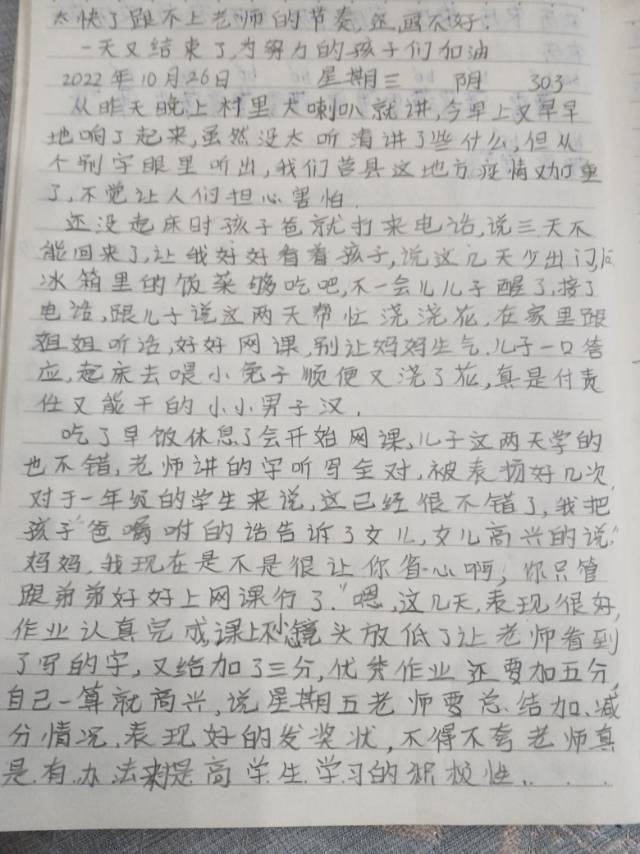 太快了跟不上老师的节奏,还,画不好.
一天又结束了,为努力的孩子们加油
2022年10月26日 星期三 阴 303
从昨天晚上村里大喇叭就讲,今早上又早早
地响了起来,虽然没太听清讲了些什么,但从
个别字眼里听出,我们莒县这地方疫情又加重
了,不觉让人们担心害怕.
还没起床时孩子爸就打来电话,说三天不
能回来了,让我好好看着孩子,说这几天少出门,问
冰箱里的饭菜够吃吧,不一会儿儿子醒了,接了
电话,跟儿子说这两天帮忙浇浇花,在家里跟
姐姐听话,好好网课,别让妈妈生气.儿子一口答
应,起床去喂小兔子顺便又浇了花,真是付责
任又能干的小小男子汉.
吃了早饭休息了会开始网课,儿子这两天学的
也不错,老师讲的字听写全对,被表扬好几次,
对于一年级的学生来说,这已经很不错了,我把
孩子爸嘱咐的话告诉了女儿,女儿高兴的说:"
妈妈,我现在是不是很让你省心啊,你只管
跟弟弟好好上网课行了."嗯,这几天,表现很好,
作业认真完成,课上秒镜头放低了让老师看到
了写的字,又给加了三分,优秀作业还要加五分,
自己一算就高兴,说星期五老师要总结加、减
分情况,表现好的发奖状,不得不夸老师真
是有办法来提高学生学习的积极性......